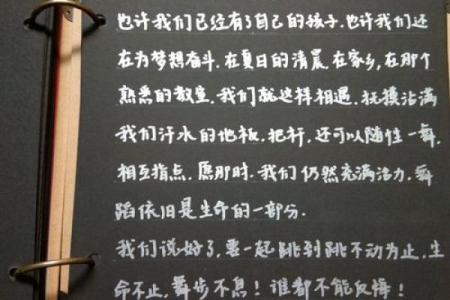 也许我们已经有了自己的孩子.也许我们还
在为梦想奋斗.在夏日的清晨.在家乡,在那个
熟悉的教室.我们就这样相遇.抚摸沾满
我们汗水的地板.把杆.还可以随性一舞.
相互指点.愿那时.我们仍然充满活力.舞
蹈依旧是生命的一部分.
我们说好了,要一起跳到跳不动为止,生
命不止,舞步不息!谁都不能反悔!